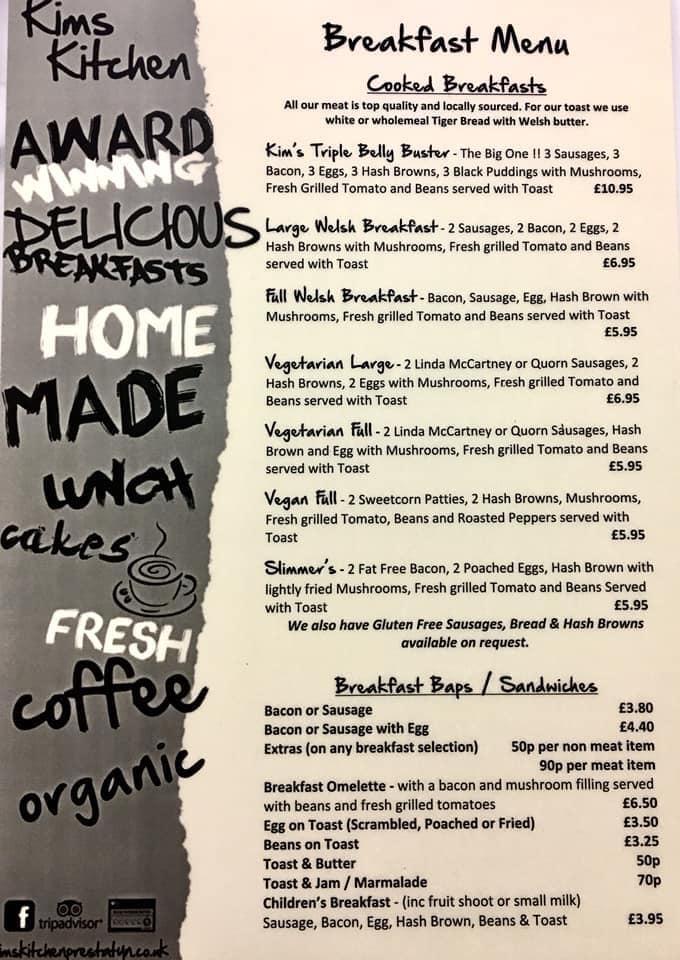 Kims
Kitchen
AWARD
WINNING
DELICIOUS
BREAKFASTS
HOME
MADE
LUNCH
cakes
FRESH
coffee
organic
tripadvisor
imskitchenprestatyn.co.uk
Breakfast Menu
Cooked Breakfasts
All our meat is top quality and locally sourced. For our toast we use
white or wholemeal Tiger Bread with Welsh butter.
Kim's Triple Belly Buster - The Big One !! 3 Sausages, 3
Bacon, 3 Eggs, 3 Hash Browns, 3 Black Puddings with Mushrooms,
Fresh Grilled Tomato and Beans served with Toast £10.95
Large Welsh Breakfast - 2 Sausages, 2 Bacon, 2 Eggs, 2
Hash Browns with Mushrooms, Fresh grilled Tomato and Beans
served with Toast £6.95
Full Welsh Breakfast - Bacon, Sausage, Egg, Hash Brown with
Mushrooms, Fresh grilled Tomato and Beans served with Toast
£5.95
Vegetarian Large - 2 Linda McCartney or Quorn Sausages, 2
Hash Browns, 2 Eggs with Mushrooms, Fresh grilled Tomato and
Beans served with Toast £6.95
Vegetarian Full - 2 Linda McCartney or Quorn Sausages, Hash
Brown and Egg with Mushrooms, Fresh grilled Tomato and Beans
served with Toast £5.95
Vegan Full - 2 Sweetcorn Patties, 2 Hash Browns, Mushrooms,
Fresh grilled Tomato, Beans and Roasted Peppers served with
Toast £5.95
Slimmer's - 2 Fat Free Bacon, 2 Poached Eggs, Hash Brown with
lightly fried Mushrooms, Fresh grilled Tomato and Beans Served
with Toast £5.95
We also have Gluten Free Sausages, Bread & Hash Browns
available on request.
Breakfast Baps / Sandwiches
Bacon or Sausage £3.80
Bacon or Sausage with Egg £4.40
Extras (on any breakfast selection) 50p per non meat item
90p per meat item
Breakfast Omelette - with a bacon and mushroom filling served
with beans and fresh grilled tomatoes £6.50
Egg on Toast (Scrambled, Poached or Fried) £3.50
Beans on Toast £3.25
Toast & Butter 50p
Toast & Jam / Marmalade 70p
Children's Breakfast - (inc fruit shoot or small milk)
Sausage, Bacon, Egg, Hash Brown, Beans & Toast £3.95